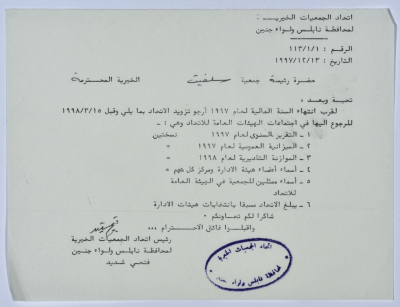 اتحاد الجمعيات الخيرية :
لمحافظة نابلس ولواء جنين
الرقم : ١١٣/١/١
التاريخ : ١٩٩٧/١٢/١٣
حضرة رئيسة جمعية سلفيت الخيرية المحترمة
تحية وبعد ،
لقرب انتهاء السنة المالية لعام ١٩٩٧ أرجو تزويد الاتحاد بما يلي وقبل ١٩٩٨/٣/١٥
للرجوع اليها في اجتماعات الهيئات العامة للاتحاد وهي : ـ
١ - التقرير السنوي لعام ١٩٩٧ نسختين
٢ - الميزانية العمومية لعام ١٩٩٧ "
٣ - الموازنة التقديرية لعام ١٩٩٨ "
٤ - أسماء أعضاء هيئة الادارة ومركز كل منهم "
٥ - أسماء ممثلين للجمعية في الهيئة العامة "
للاتحاد
٦ - يبلغ الاتحاد سبقا بانتخابات هيئات الادارة
شاكرا لكم تعاونكم ،
واقبلوا فائق الاحترام ،،،
رئيس اتحاد الجمعيات الخيرية
لمحافظة نابلس ولواء جنين
فتحي شديد
اتحاد الجمعيات الخيرية
لمحافظة نابلس ولواء جنين